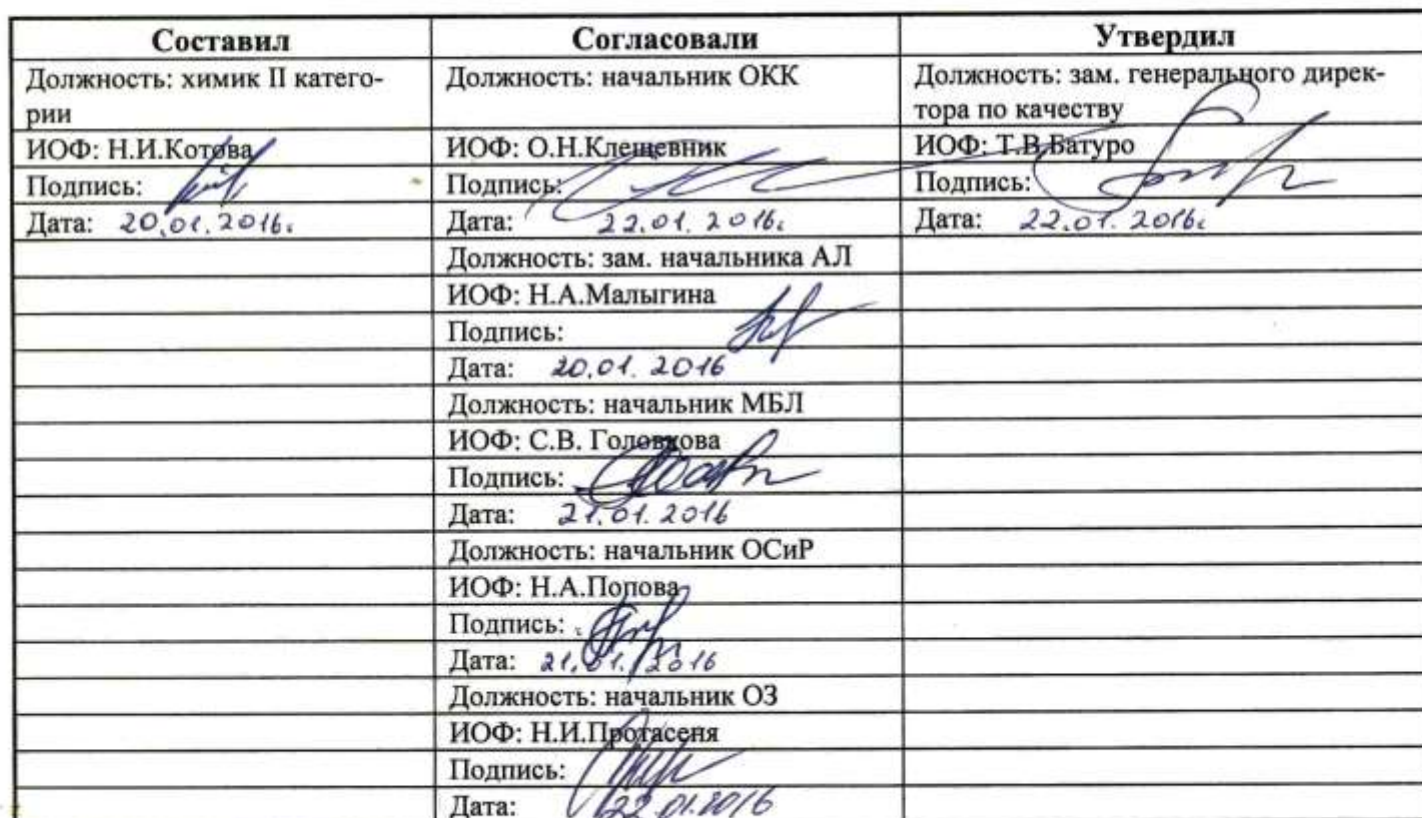 Составил Согласовали Утвердил
Должность: химик II катего- Должность: начальник ОКК Должность: зам. генерального дирек-
рии тора по качеству
ИОФ: Н.И.Котова ИОФ: О.Н.Клещевник ИОФ: Т.В.Батуро
Подпись: Подпись: Подпись:
Дата: 20.01.2016г Дата: 22.01.2016г Дата: 22.01.2016г
Должность: зам. начальника АЛ
ИОФ: Н.А.Малыгина
Подпись:
Дата: 20.01.2016
Должность: начальник МБЛ
ИОФ: С.В. Головкова
Подпись:
Дата: 21.01.2016
Должность: начальник ОСиР
ИОФ: Н.А.Попова
Подпись:
Дата: 21.01.2016
Должность: начальник ОЗ
ИОФ: Н.И.Протасеня
Подпись:
Дата: 22.01.2016